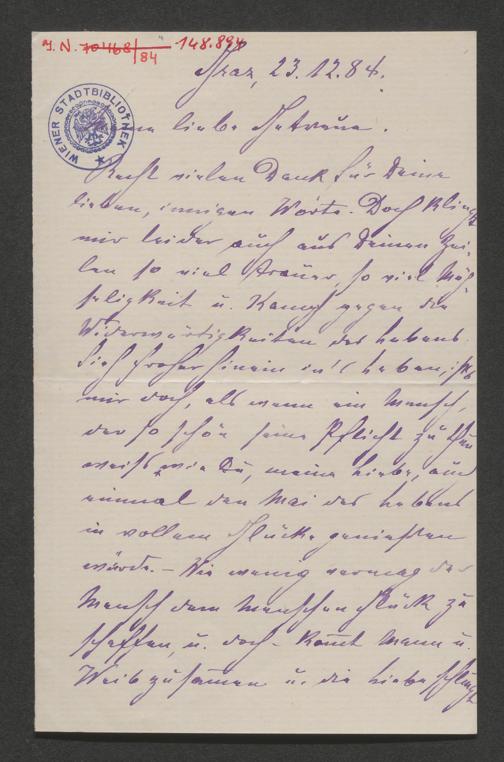 J. N. 70468/84 148.894
WIENER STADTBIBLIOTHEK
Graz, 23.12.84.
liebe Getreue.
Recht vielen Dank für Deine
lieben, innigen Worte. Doch klingt
mir leider auch aus Deinen Zei-
len so viel Trauer, so viel Müh-
seligkeit u. Kampf gegen die
Widerwärtigkeiten des Lebens.
hinein in's Leben, ist's
mir doch, als wenn ein Mensch,
der so schön seine Pflicht zu thun
weiß, wie Du, meine Liebe, auch
einmal den Mai des Lebens
in vollem Glücke genießen
würde. – Wie wenig vermag der
Mensch dem Menschen Glück zu
schaffen, u. doch – kommt Mann u.
Weib zusammen u. die Liebe schlingt